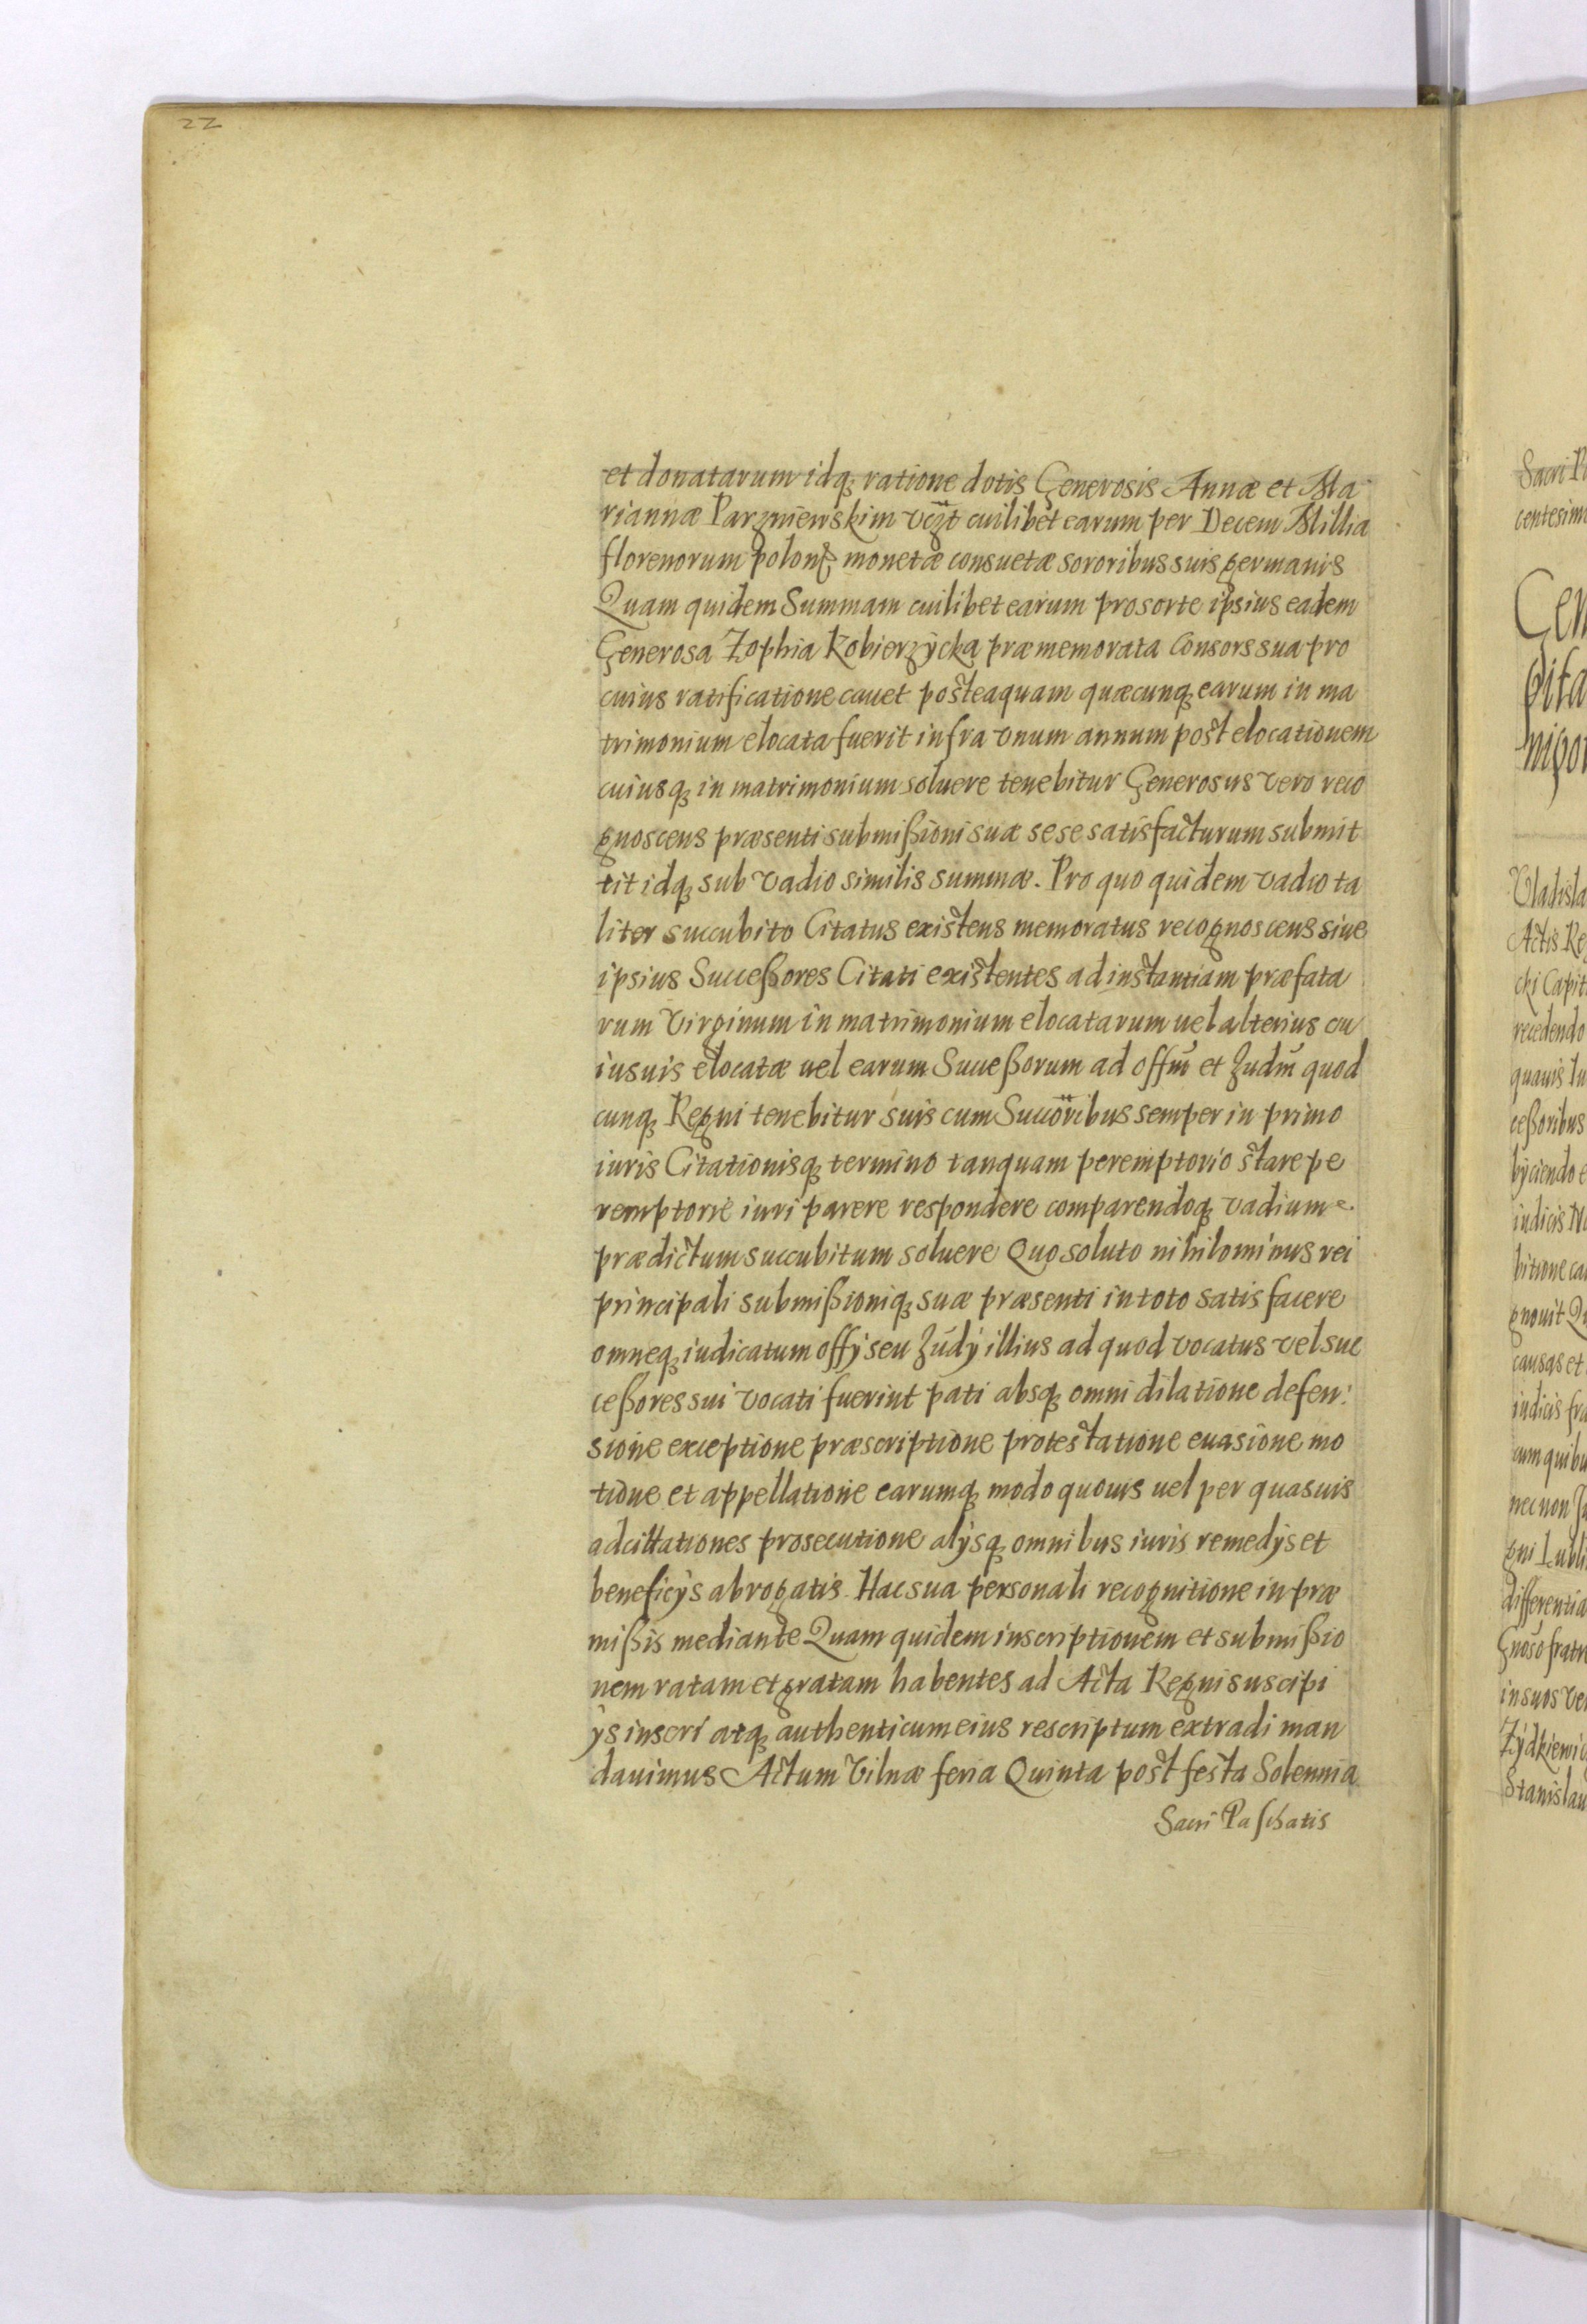 22
et donatarum idq ratione dotis Generosis Annæ et Ma
riannæ Parzniewskim vczt cuilibet earum per Decem Millia
florenorum polon monetæ consuetæ sororibus suis germanis
Quam quidem Summam cuilibet earum pro sorte ipsius eadem
Generosa Zophia Kobierzÿcka præmemorata Consors sua pro
cuius ratificatione cauet posteaquam quæcunq earum in ma
trimonium elocata fuerit infra vnum annum post elocationem
cuiusq in matrimonium soluere tenebitur Generosus vero reco
gnoscens præsenti submißioni suæ sese satisfacturum submit
tit idq sub vadio similis summæ. Pro quo quidem vadio ta
liter succubito Citatus existens memoratus recognoscens siue
ipsius Succeßores Citati existentes ad instantiam præfata
rum Virginum in matrimonium elocatarum uel alterius cu
iusuis elocatæ uel earum Succeßorum ad offm et Judm quod
cunq Regni tenebitur suis cum Succoribus semper in primo
iuris Citationisq termino tanquam peremptorio stare pe
remptorie iuri parere respondere comparendoq vadium
prædictum succubitum soluere Quo soluto nihilominus rei
principali submißioniq suæ præsenti in toto satisfacere
omneq iudicatum offÿ seu Judÿ illius ad quod vocatus vel suc
ceßores sui vocati fuerint pati absq omni dilatione defen:
sione exceptione præscriptione protestatione euasione mo
tione et appellatione earumq modo quouis uel per quasuis
adcittationes prosecutione alÿsq omnibus iuris remedÿs et
beneficÿs abrogatis. Hac sua personali recognitione in præ
mißis mediante Quam quidem inscriptionem et submißio
nem ratam et gratam habentes ad Acta Regni suscipi
ÿs inscri atq authenticum eius rescriptum extradi man
dauimus Actum Vilnæ feria Quinta post festa Solennia
Sacri Paschatis
Sacri
centesim
Gen
pita
nipo
Vladisla
Actis Re
cki Capit
recedendo
quauis In
ceßoribus
bÿciendo e
iudicis
bitione ca
gnouit
causas et
iudicis fra
cum quibu
nec non
gni Lubli
differentia
Gnoso fratr
in suos ve
Zÿdkiewic
Stanislau